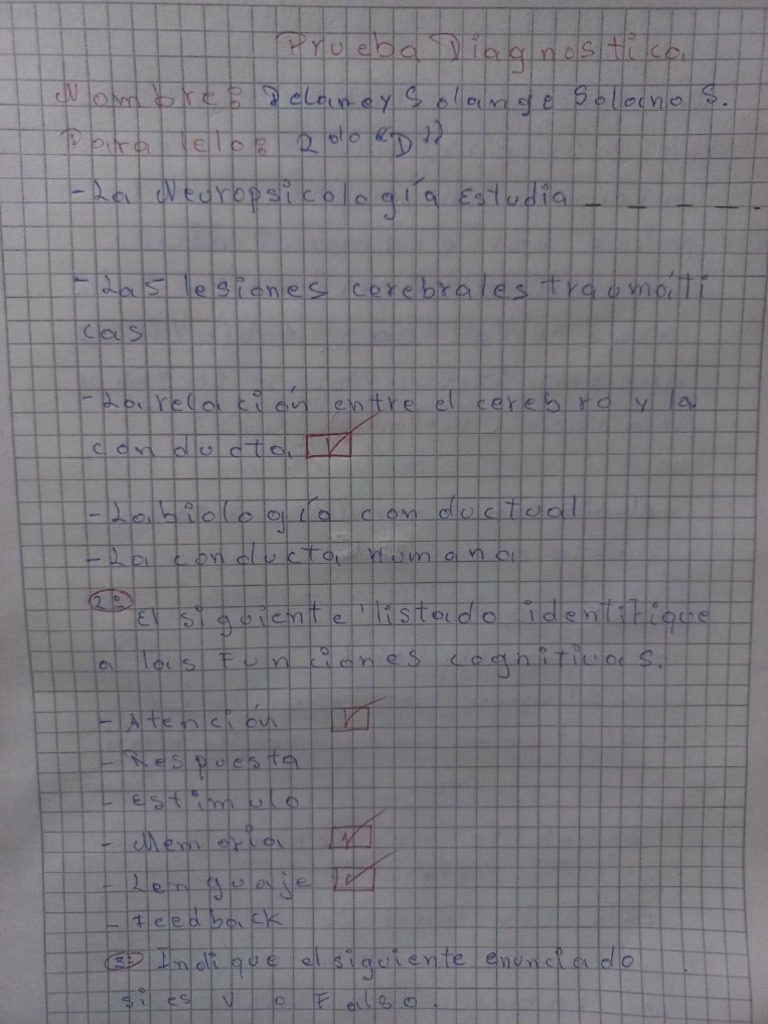 Prueba Diagnostica
Nombres: Idaney Solange Solano S.
Paralelo: 2do "D"
- La Neuropsicología Estudia - - - -
- Las lesiones cerebrales traumáti
cas
- La relación entre el cerebro y la
conducta
- La biología conductual
- La conducta humana
2: El siguiente listado identifique
a las Funciones cognitivas.
- Atención
- Respuesta
- Estimulo
- Memoria
- Lenguaje
- Feedback
3: Indique el siguiente enunciado
si es V o Falso.